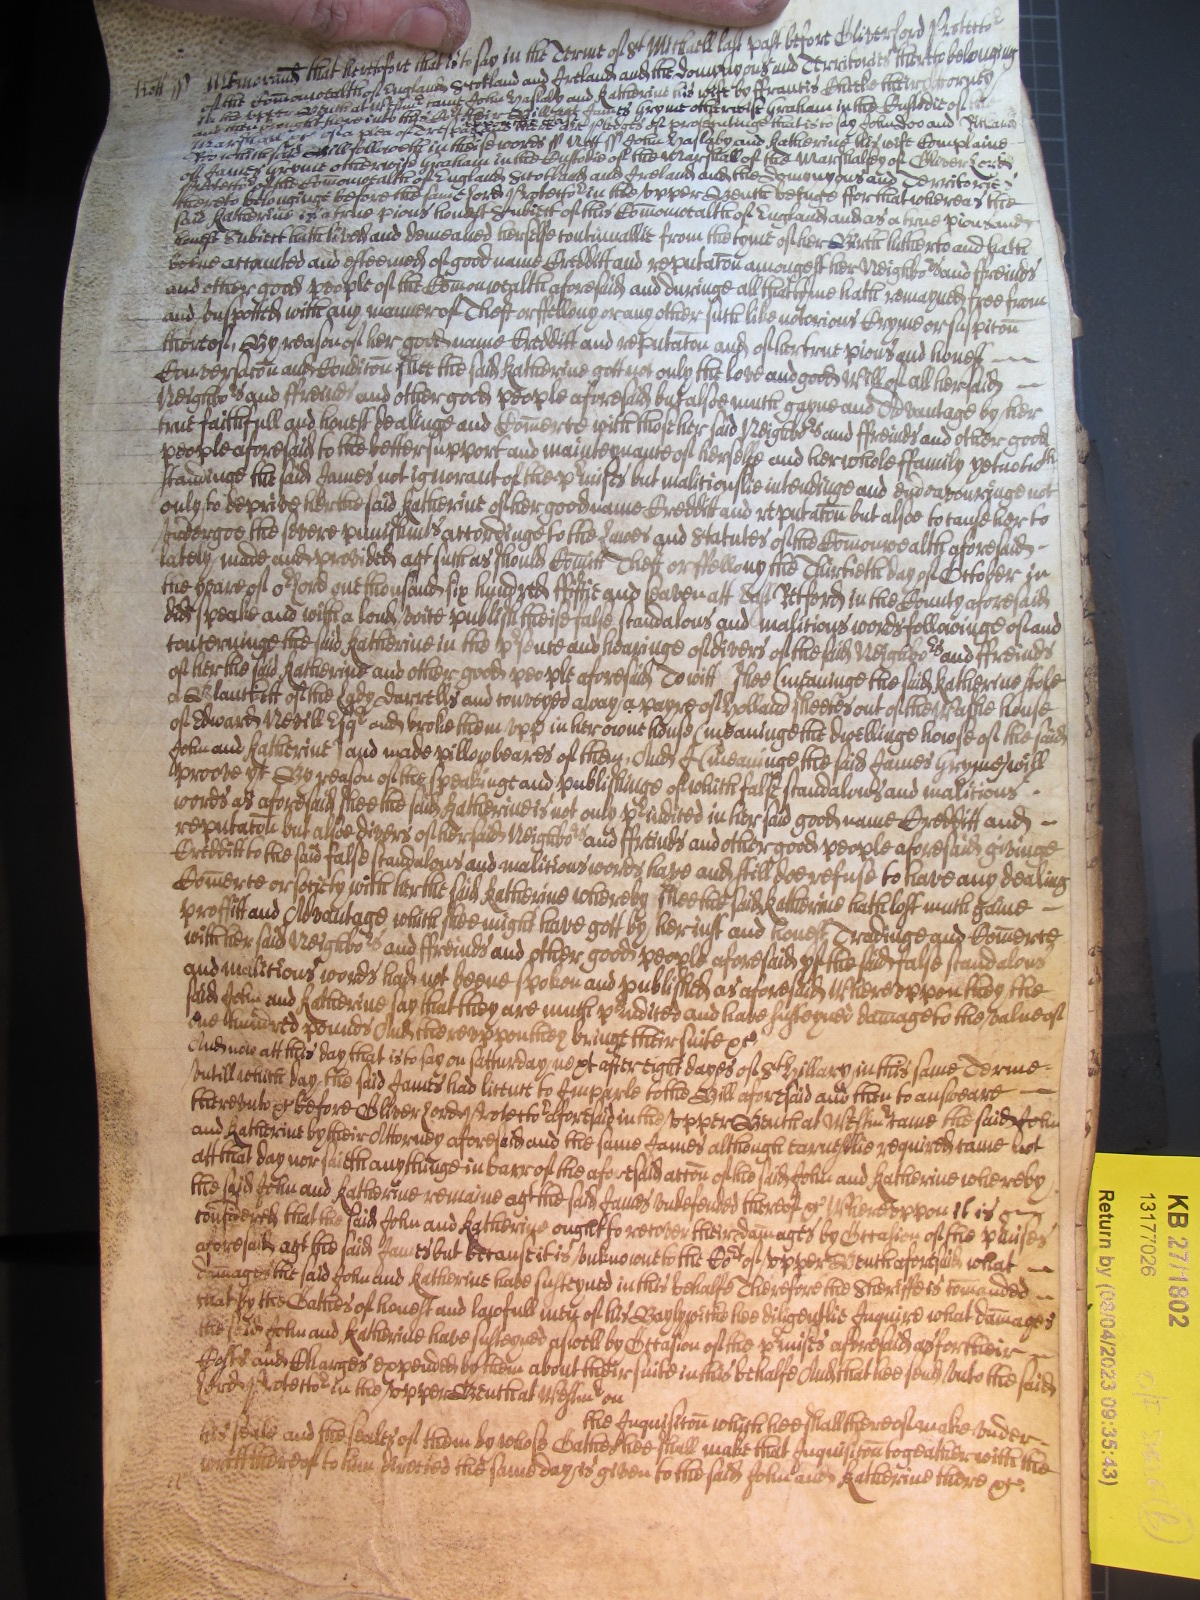 Nott ss Memorand that heretofore that is to say in the Terme of St Michaell last past before Oliver Lord Protector
of the Comonwealth of England Scotland and Ireland and the Domynyons and Territories thereto belonging
in the upper Bench at Westmr came John Haslaby and Katherine his wife by Francis their Attorney
and then brought here into the their Bill agt James Gryme otherwise Graham in the Custodie of the
Marshall of a plea of Trespas And there are pledges of prosecutinge that is to say John Doo and Richard
Roo which said Bill followeth in theise words ss Nott ss John Haslaby and Katherine his wife Complaine
of James Gryme otherwise Graham in the Custodie of the Marshall of the Marshalsey of Oliver Lord
Protector of the Comonwealth of England Scotland and Ireland and the Domynyons and Territories
thereto belonginge before the same Lord Protector in the upper Bench beinge for that whereas the
said Katherine is a true pious honest Subiect of this Comonwealth of England and as a true pious and
honest Subiect hath lived and demeaned herselfe continuallie from the tyme of her Birth hitherto and hath
beene accounted and esteemed of good name Creditt and reputacon amongest her Neighbors and ffreinds
and other good people of the Comonwealth aforesaid and duringe all that tyme hath remayned free from
and unspotted with any manner of Theft or ffellony or any other such like notorious Cryme or suspicon
thereof, By reason of her good name Creditt and reputacon and of her true pious and honest
Conversacon and Condicon shee the said Katherine gott not only the love and good will of all her said
Neighbors and ffreinds and other good people aforesaid but alsoe much gayne and Advantage by her
true faithfull and honest dealinge and Comerce with those her said Neighbors and ffreinds and other good
people aforesaid to the better support and maintenance of herselfe and her whole ffamily yet notwith
standinge the said James not ignorant of the pmisses but malitiouslie intendinge and endeavouringe not
only to deprive her the said Katherine of her good name Creditt and reputacon but alsoe to cause her to
undergoe the severe punishmts accordinge to the Lawes and Statutes of the Comonwealth aforesaid
lately made and provided agt such as should Comitt Theft or ffellony the Thirtieth day of October in
the yeare of or Lord one thousand six hundred ffiftie and seaven att East Retford in the County aforesaid
did speake and with a loud voice publish theise false scandalous and malitious words followinge of and
concerninge the said Katherine in the psence and hearinge of divers of the said Neighbors and ffreinds
of her the said Katherine and other good people aforesaid To witt Shee (meaninge the said Katherine stole
a Blankett of the Lady Darrells and conveyed away a payre of Holland sheetes out of the Washe house
of Edward Nevill Esqr and broke them upp in her owne house (meaninge the dwellinge howse of the said
John and Katherine) and made pillowbeares of them, And I (meaninge the said James Gryme) will
proove yt By reason of the speakinge and publishinge of which false scandalous and malitious
words as aforesaid shee the said Katherine is not only pjudiced in her said good name Creditt and
reputacon but alsoe divers of her said Neighbors and ffreinds and other good people aforesaid givinge
Creditt to the said false scandalous and malitious words have and still doe refuse to have any dealing
Comerce or society with her the said Katherine whereby shee the said Katherine hath lost much gaine
proffitt and Advantage which shee might have gott by her iust and honest Tradinge and Comerce
with her said Neighbors and ffreinds and other good people aforesaid yf the said false scandalous
and malitious words had not beene spoken and published as aforesaid Whereuppon they the
said John and Katherine say that they are much pjudiced and have susteyned damage to the value of
one hundred pounds And thereuppon they bringe their suite &c
And now att this day that is to say on Satturday next after eight dayes of St Hillary in this same Terme
untill which day the said James had licence to Imparle to the Bill aforesaid and then to answeare
thereunto &c before Oliver Lord Protector aforesaid in the upper Bench at Westmr came the said John
and Katherine by their Attorney aforesaid and the same James although earnestlie required came not
att that day nor saith anythinge in barr of the aforesaid accon of the said John and Katherine whereby
the said John and Katherine remaine agt the said James undefended thereof &c Whereuppon it is
considered that the said John and Katherine ought to recover their damages by Occasion of the pmises
aforesaid agt the said James but because it is unknowne to the Cort of upper Bench aforesaid what
damages the said John and Katherine have susteyned in this behalfe Therefore the Sheriffe is comanded
that by the Oathes of honest and lawfull men of his Baylywicke hee diligentlie Inquire what damages
the said John and Katherine have susteyned aswell by Occasion of the pmises aforesaid as for their
Costs and Charges expended by them about their suite in this behalfe And that hee send unto the said
Lord Protector in the upper Bench at Westmr on
the Inquisicon which hee shall thereof make under
his seale and the seales of them by whose Oathes hee shall make that Inquisicon togeather with the
writt thereof to him directed the same day is given to the said John and Katherine there &c.
KB 27/1802
13177026
Return by (08/04/2023 09:35:43)